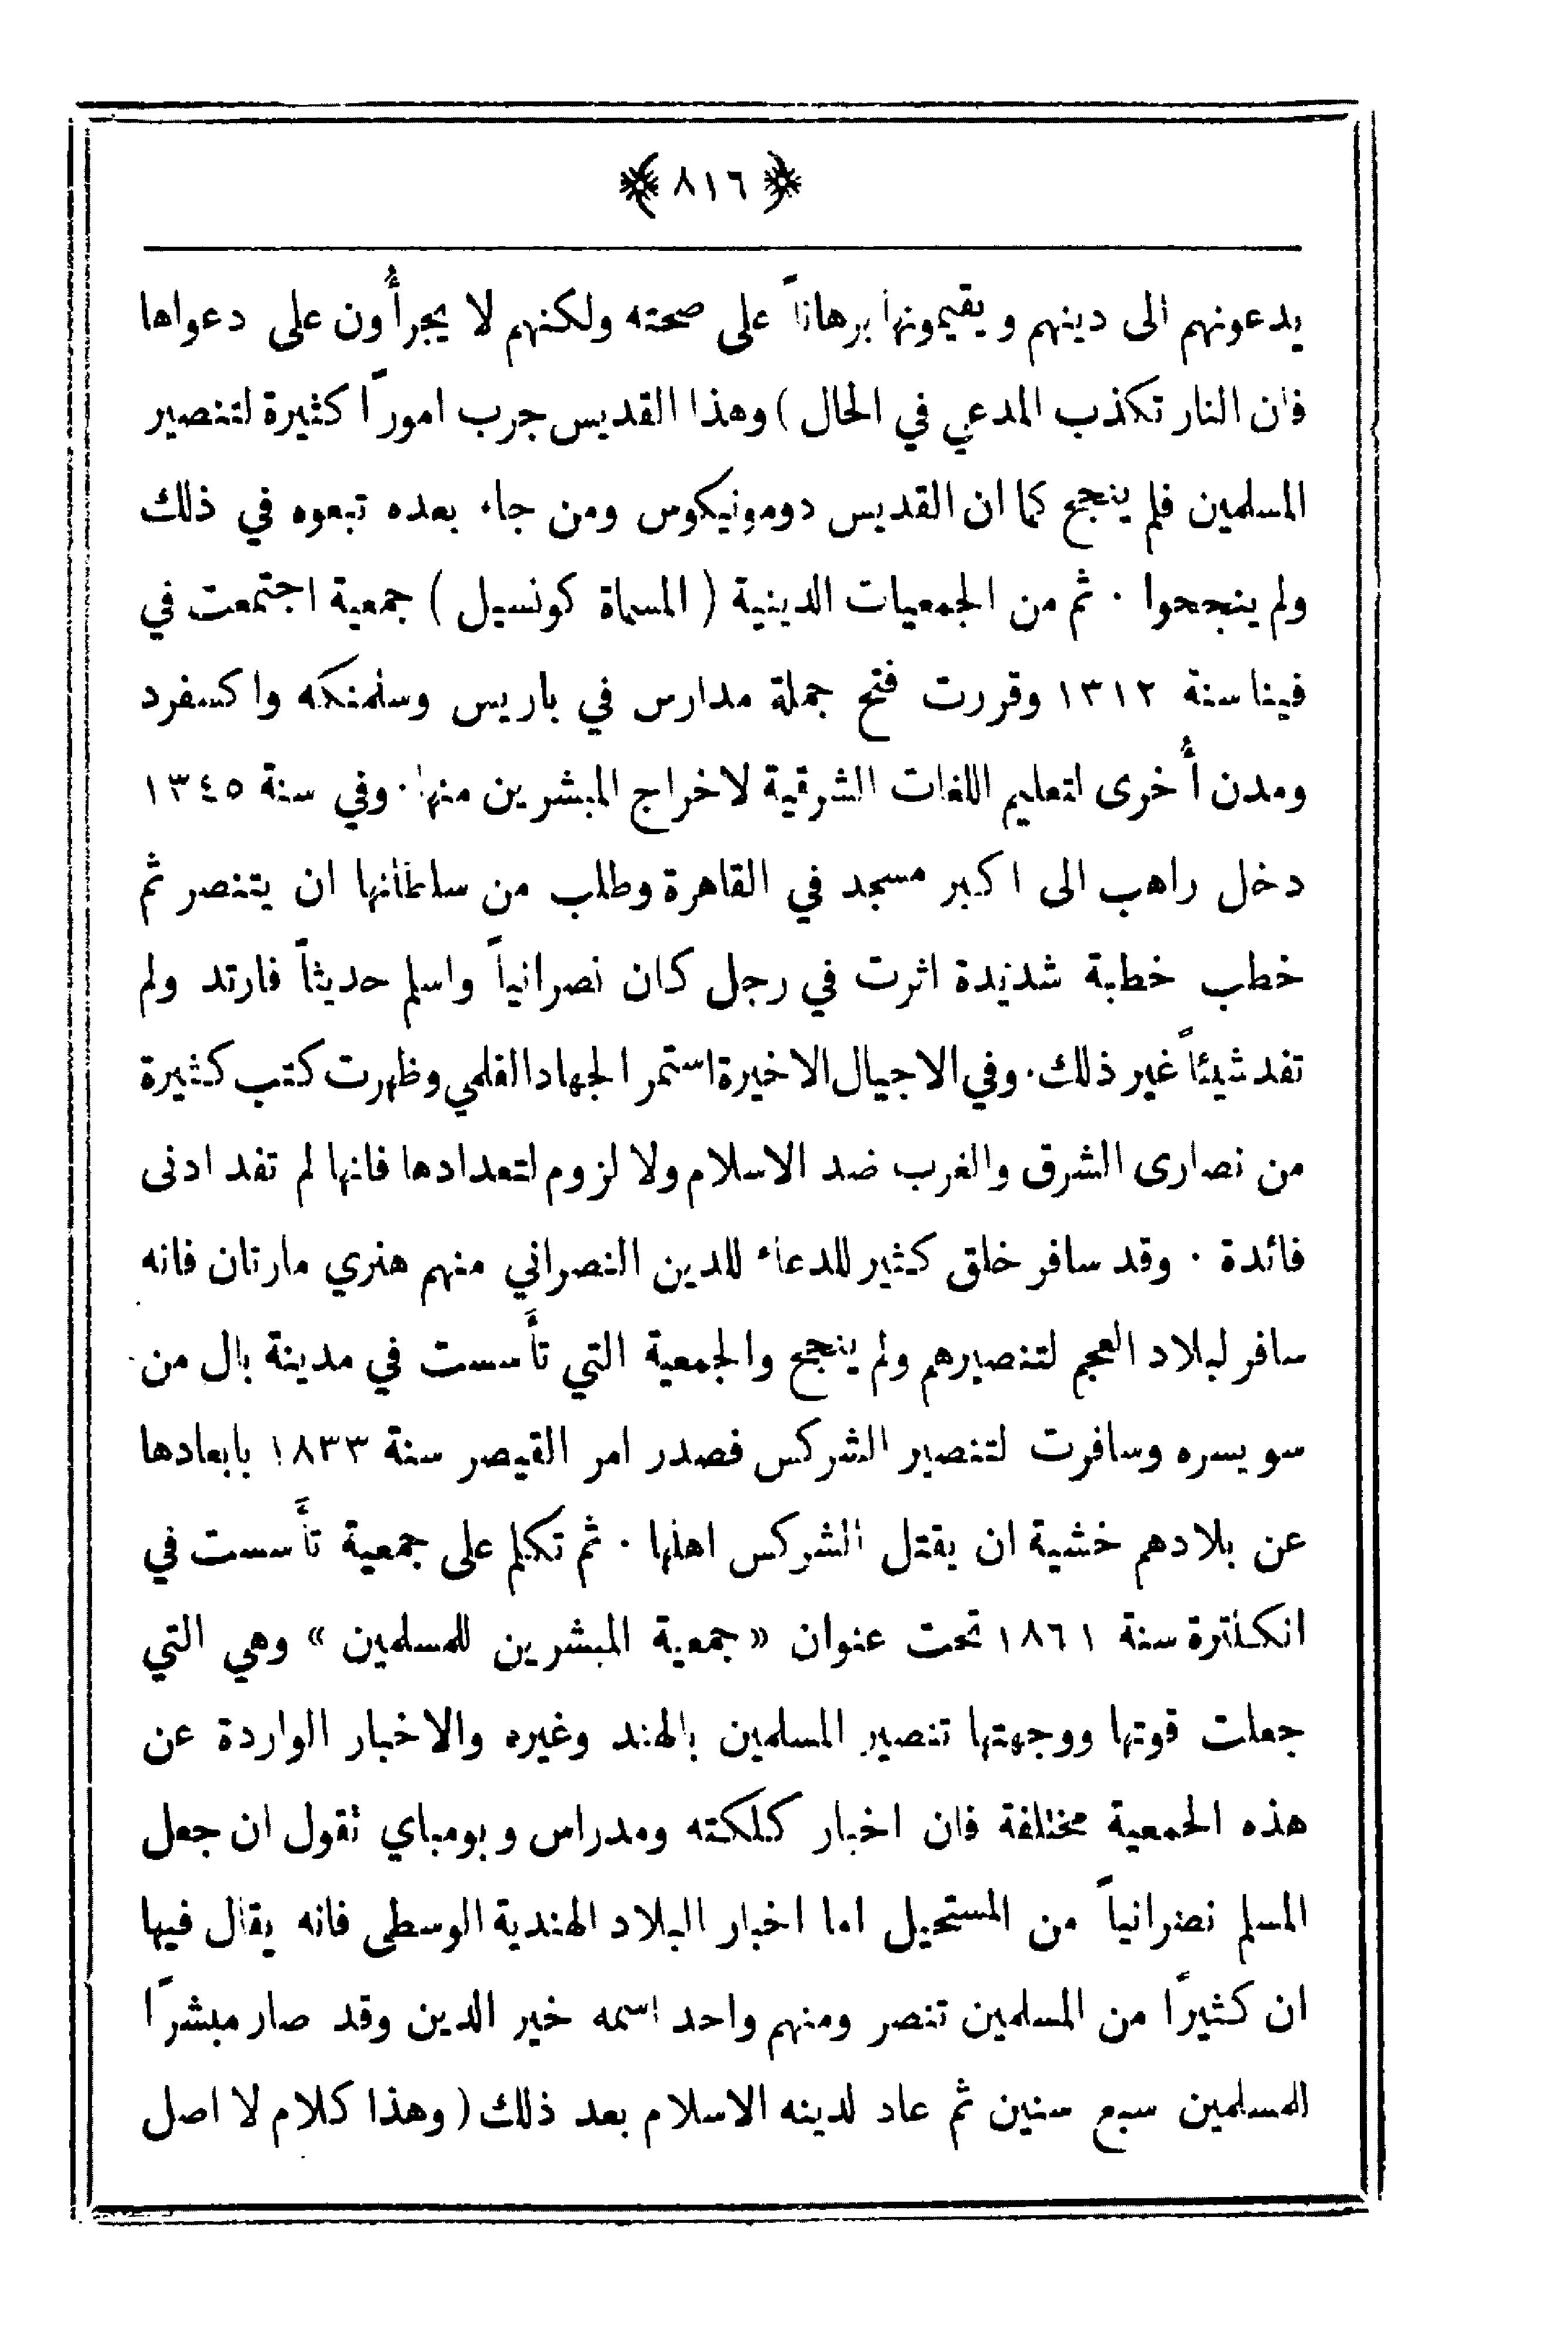 ﴿ ٨١٦ ﴾
يدعونهم الى دينهم ويقيمونها برهاناً على صحته ولكنهم لا يجرأُون على دعواها
فان النار تكذب المدعي في الحال ) وهذا القديس جرب اموراً كثيرة لتنصير
المسلمين فلم ينجح كما ان القديس دومونيكوس ومن جاء بعده تبعوه في ذلك
ولم ينجحوا . ثم من الجمعيات الدينية ( المسماة كونسيل ) جمعية اجتمعت في
فينا سنة ١٣١٢ وقررت فتح جملة مدارس في باريس وسلمنكه واكسفرد
ومدن أُخرى لتعليم اللغات الشرقية لاخراج المبشرين منها . وفي سنة ١٣٤٥
دخل راهب الى اكبر مسجد في القاهرة وطلب من سلطانها ان يتنصر ثم
خطب خطبة شديدة اثرت في رجل كان نصرانياً واسلم حديثاً فارتد ولم
تفد شيئاً غير ذلك . وفي الاجيال الاخيرة استمر الجهاد القلمي وظهرت كتب كثيرة
من نصارى الشرق والغرب ضد الاسلام ولا لزوم لتعدادها فانها لم تفد ادنى
فائدة . وقد سافر خلق كثير للدعاء للدين النصراني منهم هنري مارتان فانه
سافر لبلاد العجم لتنصيرهم ولم ينجح والجمعية التي تأَسست في مدينة بال من
سويسره وسافرت لتنصير الشركس فصدر امر القيصر سنة ١٨٣٣ بابعادها
عن بلادهم خشية ان يقتل الشركس اهلها . ثم تكلم على جمعية تأَسست في
انكلترة سنة ١٨٦١ تحت عنوان « جمعية المبشرين للمسلمين » وهي التي
جعلت قوتها ووجهتها تنصير المسلمين بالهند وغيره والاخبار الواردة عن
هذه الجمعية مختلفة فان اخبار كلكته ومدراس وبومباي تقول ان جعل
المسلم نصرانياً من المستحيل اما اخبار البلاد الهندية الوسطى فانه يقال فيها
ان كثيراً من المسلمين تنصر ومنهم واحد اسمه خير الدين وقد صار مبشراً
للمسلمين سبع سنين ثم عاد لدينه الاسلام بعد ذلك ( وهذا كلام لا اصل